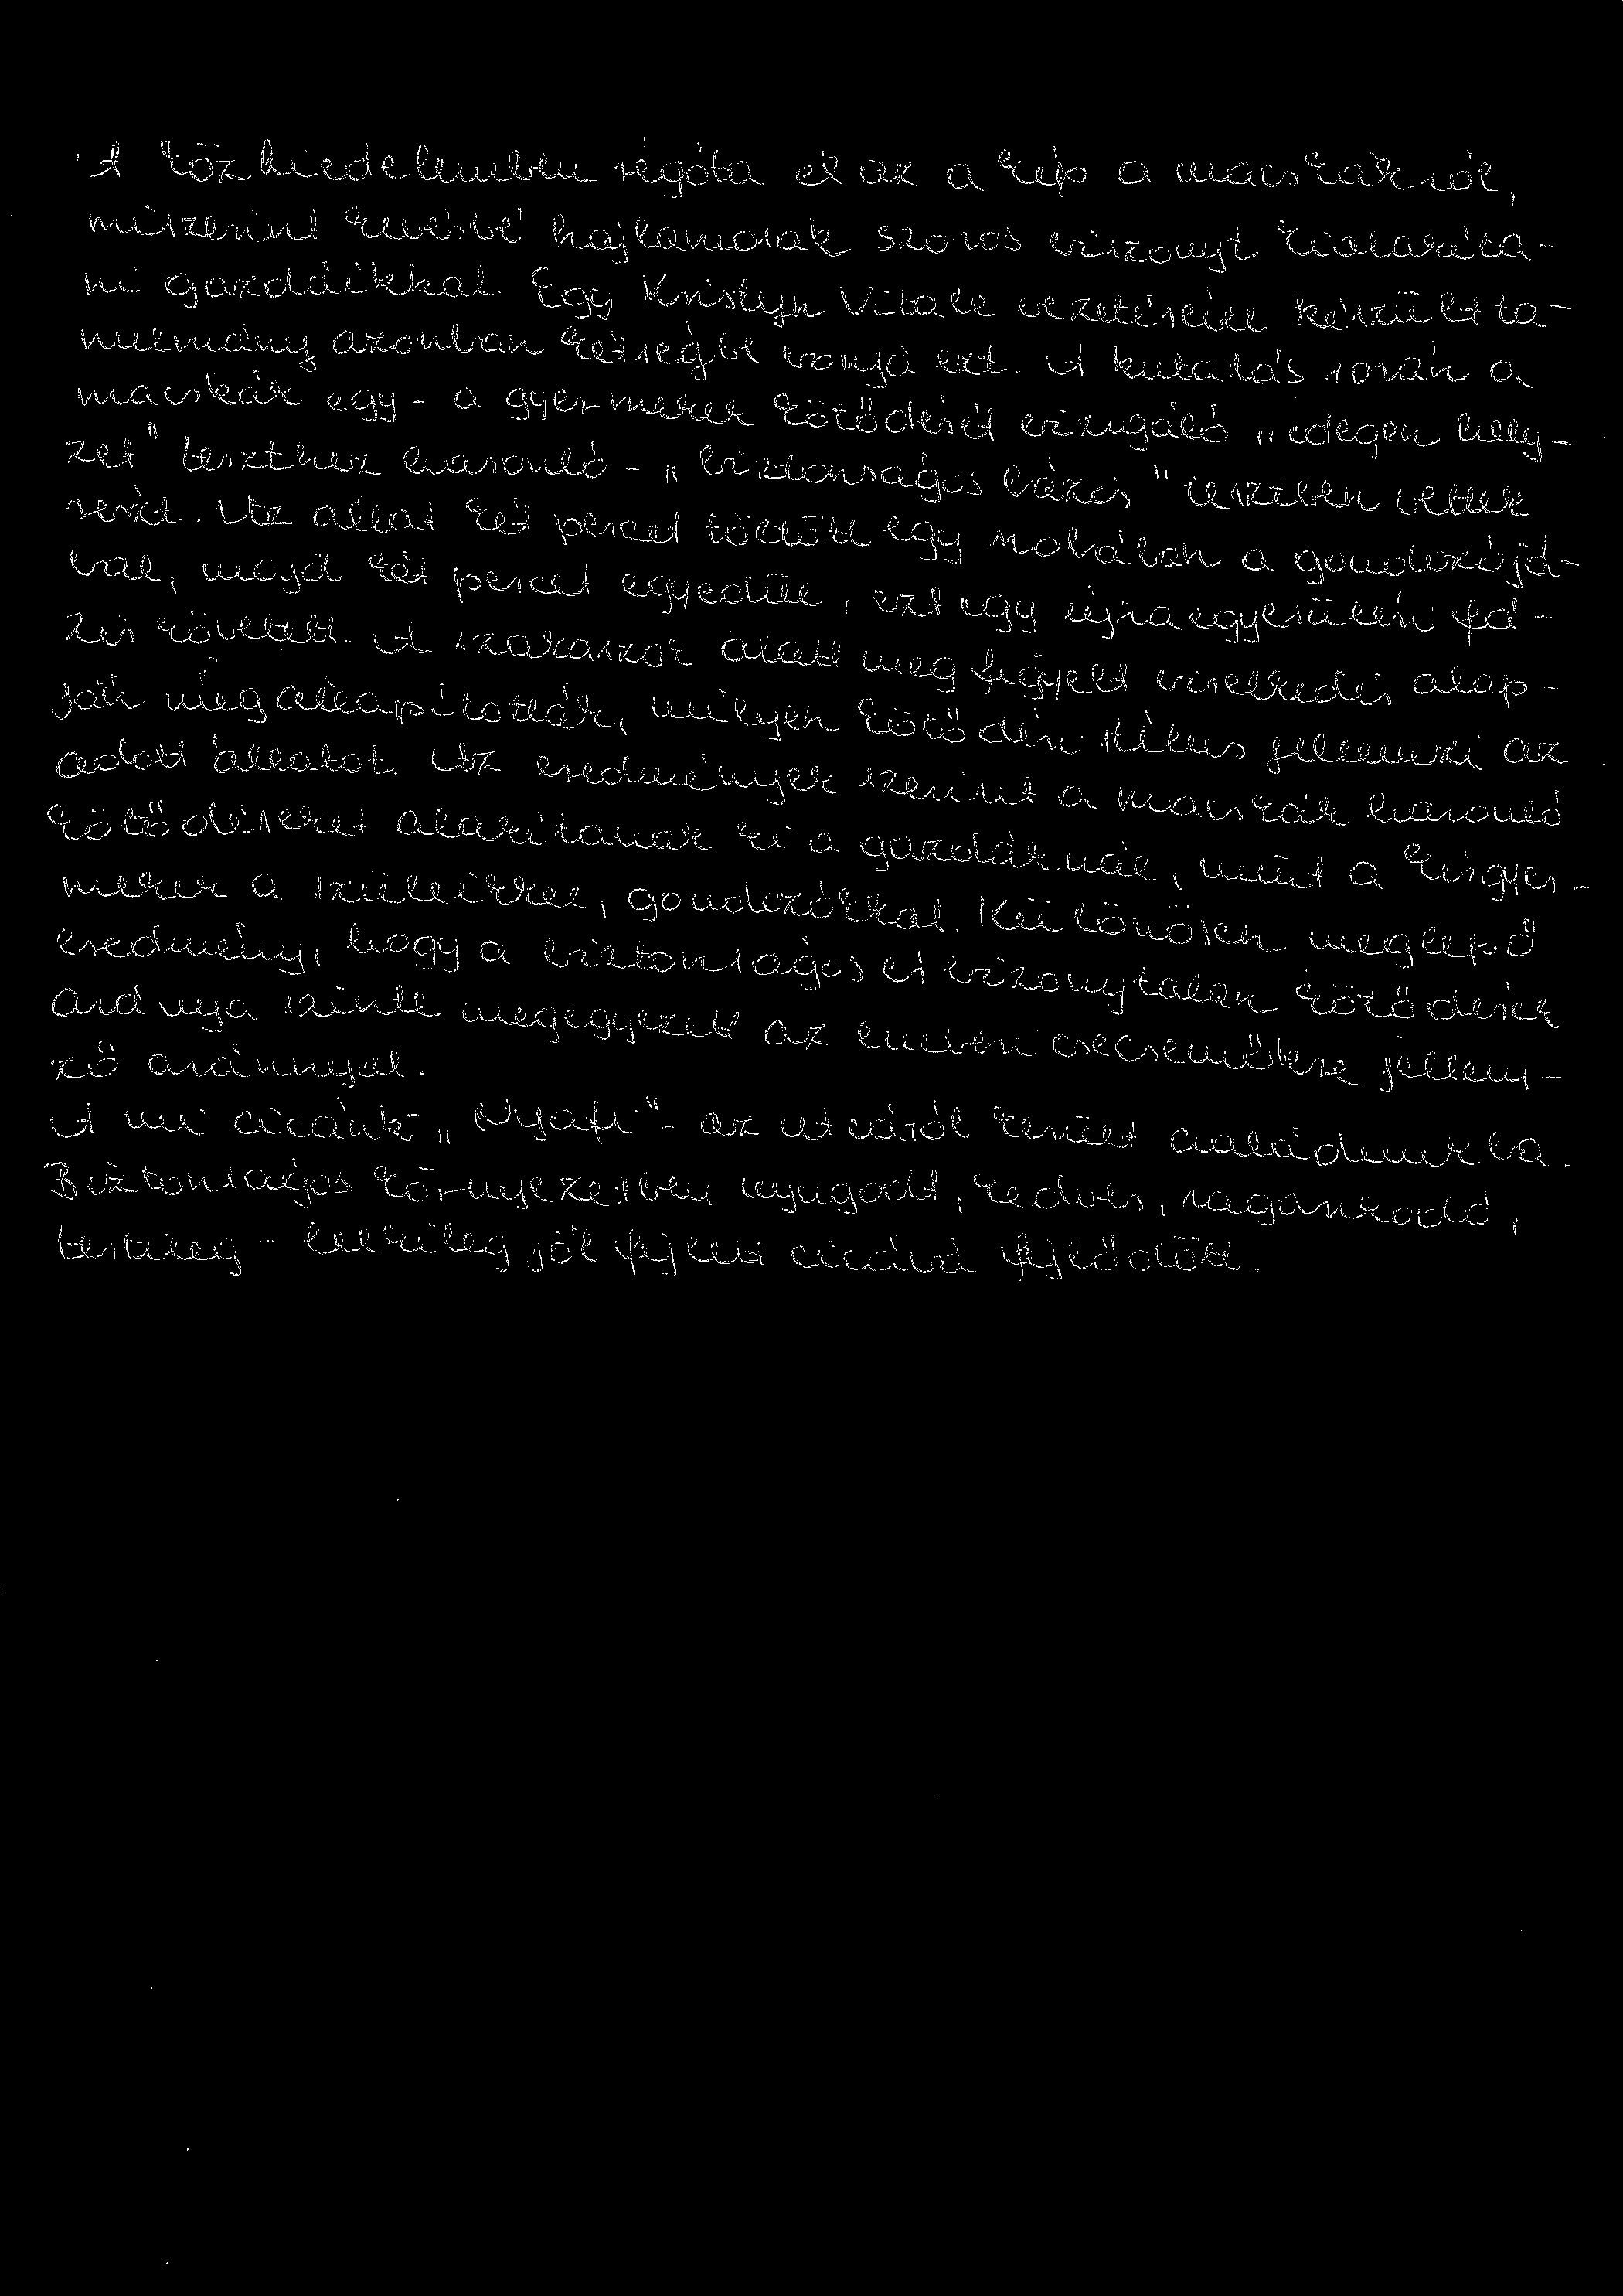 A közhiedelemben régóta él az a kép a macskákról,
miszerint kevésbé hajlamosak szoros viszonyt kialakíta-
ni gazdáikkal. Egy Kristyn Vitale vezetésével készült ta-
nulmány azonban kétségbe vonja ezt. A kutatás során a
macskák egy - a gyermekek kötődését vizsgáló „idegen hely-
zet" teszthez hasonló - „biztonságos bázis" tesztben vettek
részt. Az állat két percet töltött egy szobában a gondozójá-
val, majd két percet egyedül, ezt egy újraegyesülési fá-
zis követett. A szakaszok alatt megfigyelt viselkedés alap-
ján megállapították, milyen kötődési stílus jellemzi az
adott állatot. Az eredmények szerint a macskák hasonló
kötődéseket alakítanak ki a gazdáknál, mint a kisgyer-
mekek a szüleikkel, gondozókkal. Különösen meglepő
eredmény, hogy a biztonságos és bizonytalan kötődések
aránya szinte megegyezett az emberi csecsemőkre jellem-
ző aránnyal.
A mi cicánk „Nyafi"- az utcáról került családunkba.
Biztonságos környezetben nyugodt, kedves, ragaszkodó,
testileg - lelkileg jól fejlett cicává fejlődött.